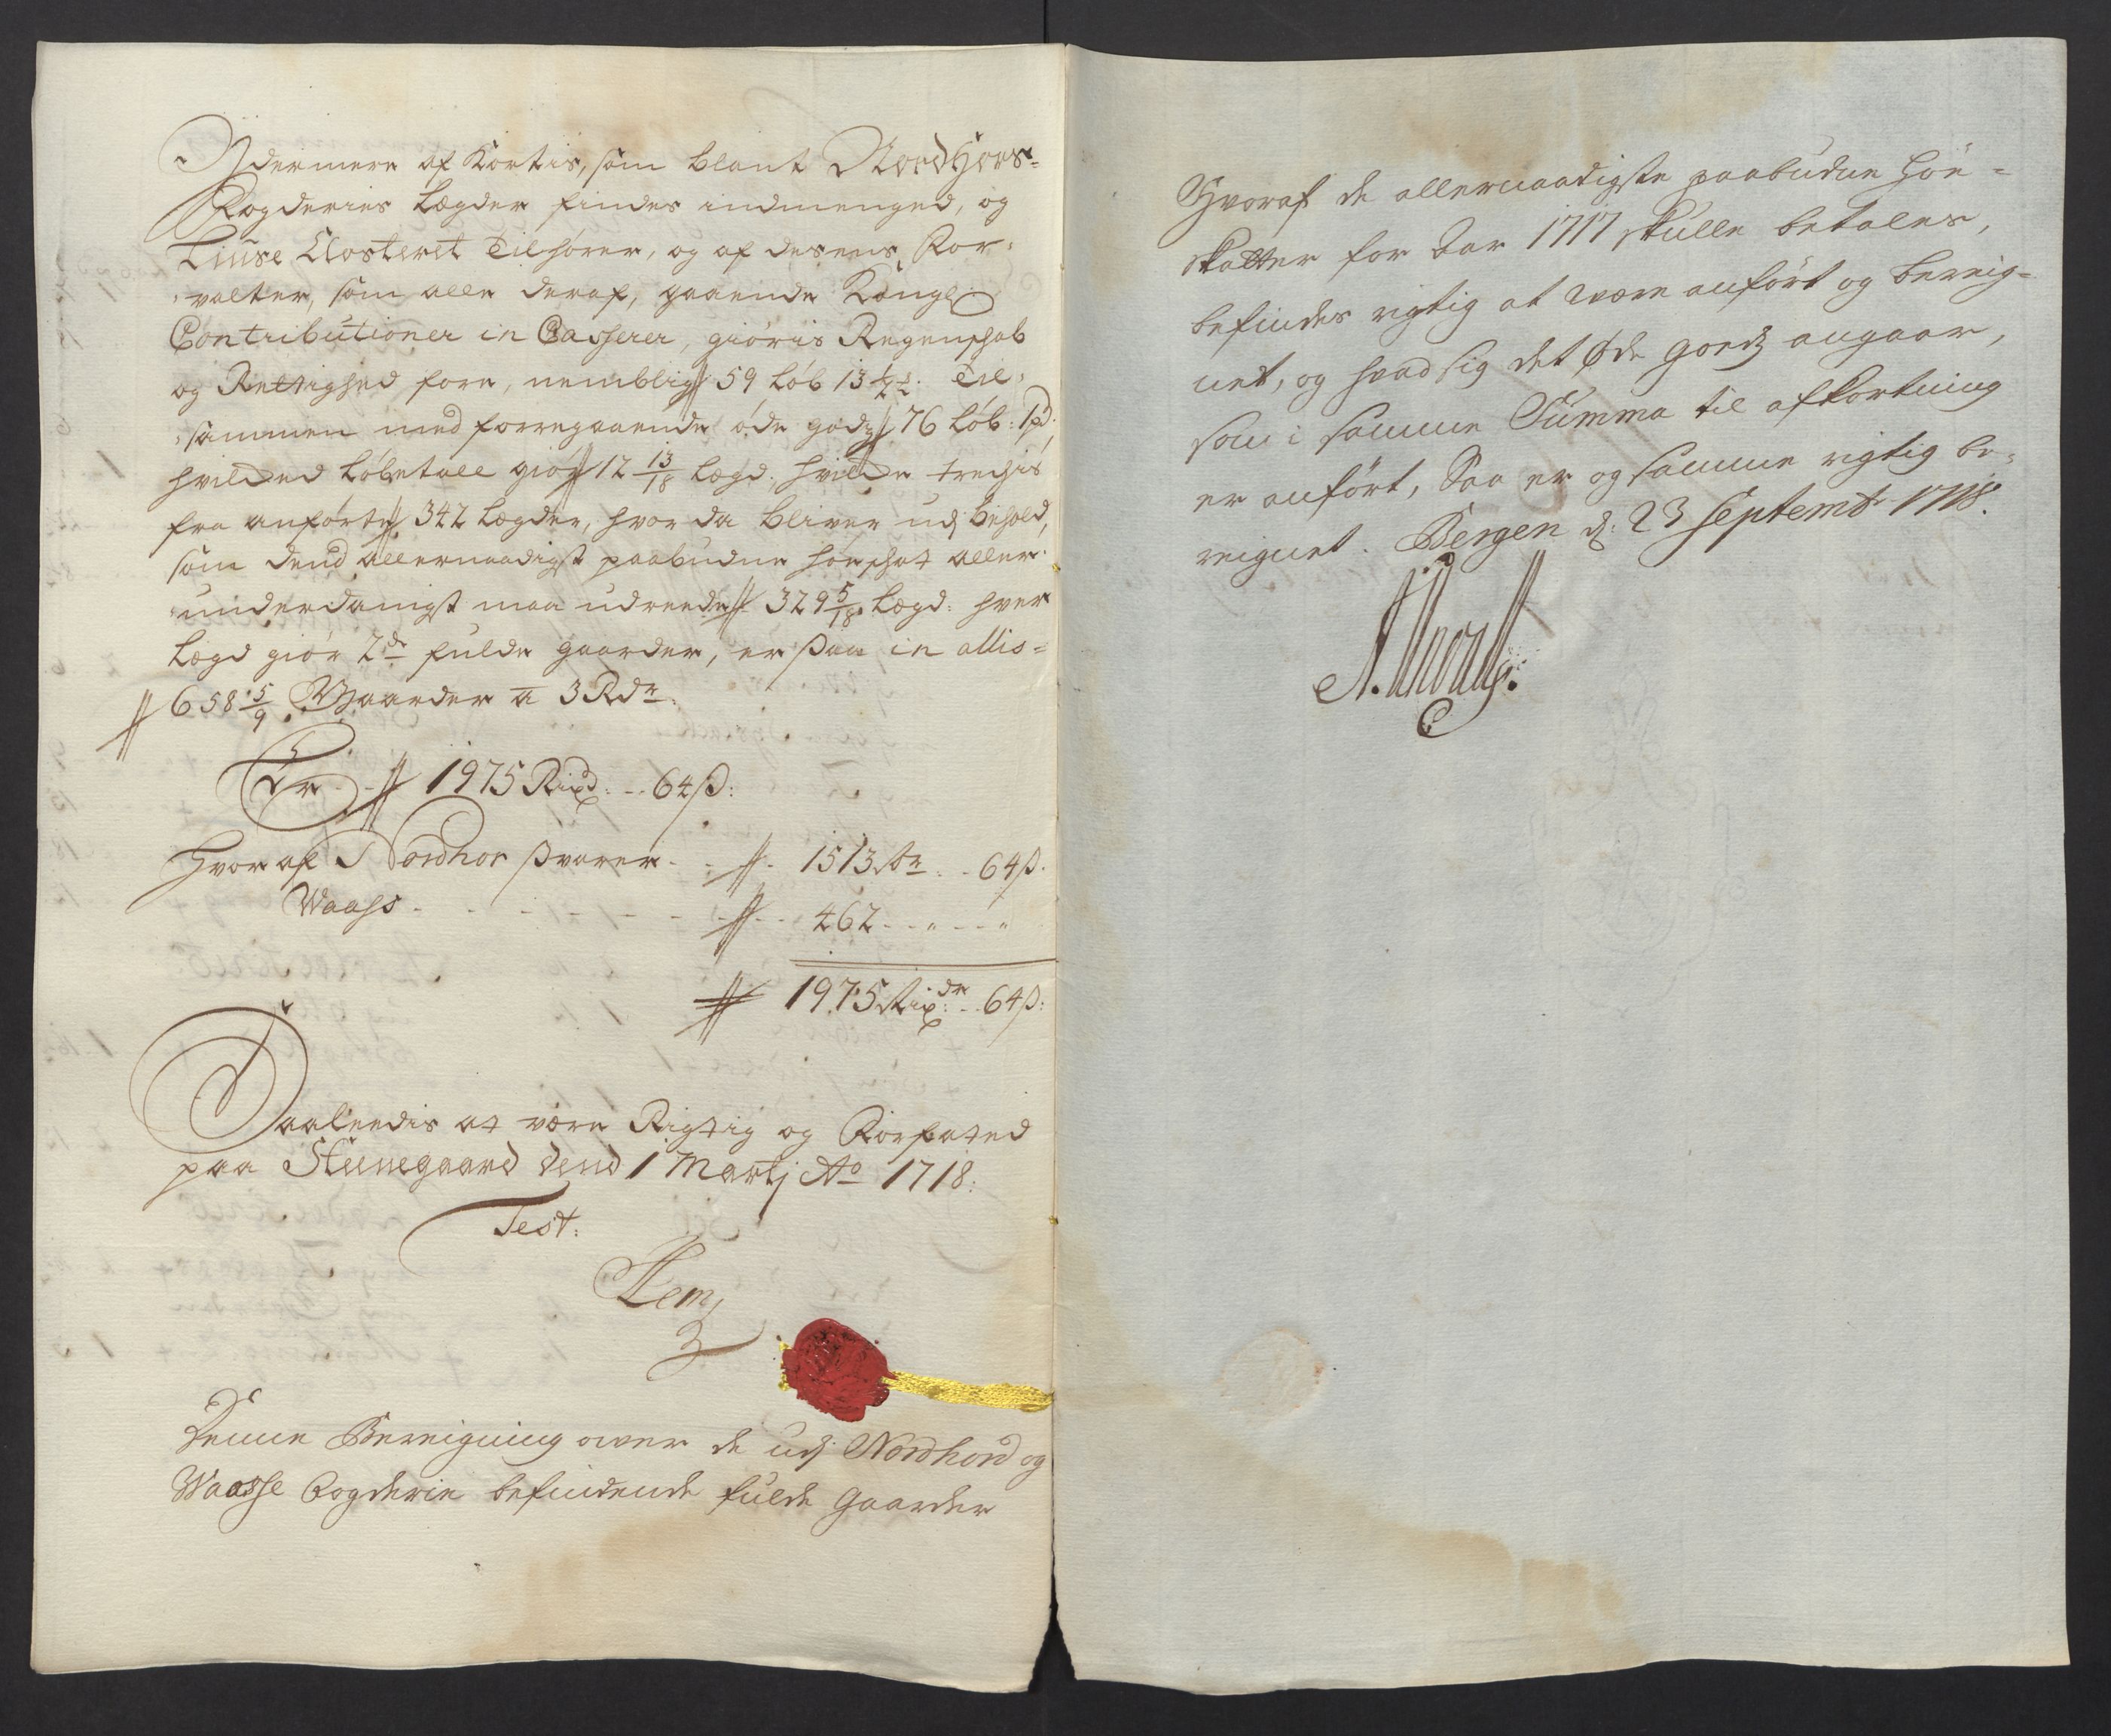 Ydermere af Kortis, som blant Nordhors-
Fogderies Lægder findes indmenged, og
Liuse Closteret Tilhører, og af desens For-
valter, som alle deraf, gaaende Kongl:
Contributioner in Casserer, giøris Regenschab
og Rettighed fore, nemblig 59 Løb 13 ½ . Til-
sammen med forregaaende øde godz 76 Løb: 1pd:,
hvilched Løbetall giør 12 13/18 Lægd: hvilche trechis
fra anførte 342 Lægder, hvor da bliver udj behold,
som dend allernaadigst paabudne høeschat aller-
underdanigst maa udreede 329 5/18 Lægd: hver
Lægd giør 2de fulde gaarder, er ſaa in allis-
658 5/9 Gaarder a 3 Rdr.
Er 1975 Rixd: - 64 ß:
Hvor af Nordhor ſvarer - 1513 dr - 64 ß.
Waass - - - 462 - " - "
1975 Rixdr: - 64 ß:
Saaleedis at være Rigtig og Forfated
paa Steenegaard dend 1 Martj Ao 1718:
Test:
Lem
Denne Bereigning over de udj Nordhord og
Waasse Fogderie befindende fulde Gaarder
Hvoraf de allernaadigste paabudne höe-
skatter for Aar 1717 skulle betales,
befindes rigtig at være anfört og bereig-
net, og hvad sig det øde godz angaar,
som i samme Summa til afkortning
er anfört, Saa er og samme rigtig be-
reignet. Bergen d: 23 Septembr 1718.